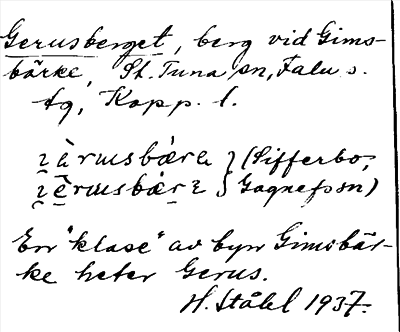 Gerusberget, berg vid Gims-
bärke, St. Tuna sn, Falu s.
tg, Kopp. l.
(Sifferbo,
Gagnefs sn)
En "klase" av byn Gimsbär-
ke heter Gerus.
H. Ståhl 1937.